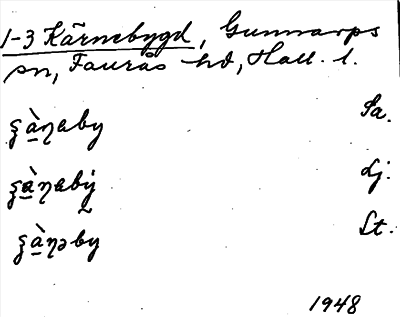 1-3 Kärnebygd, Gunnarps
sn, Faurås hd, Hall. l.
ʂàŋɐby Sa.
ʂàŋɐbý Lj.
ʂàŋəbỹ St.
1948